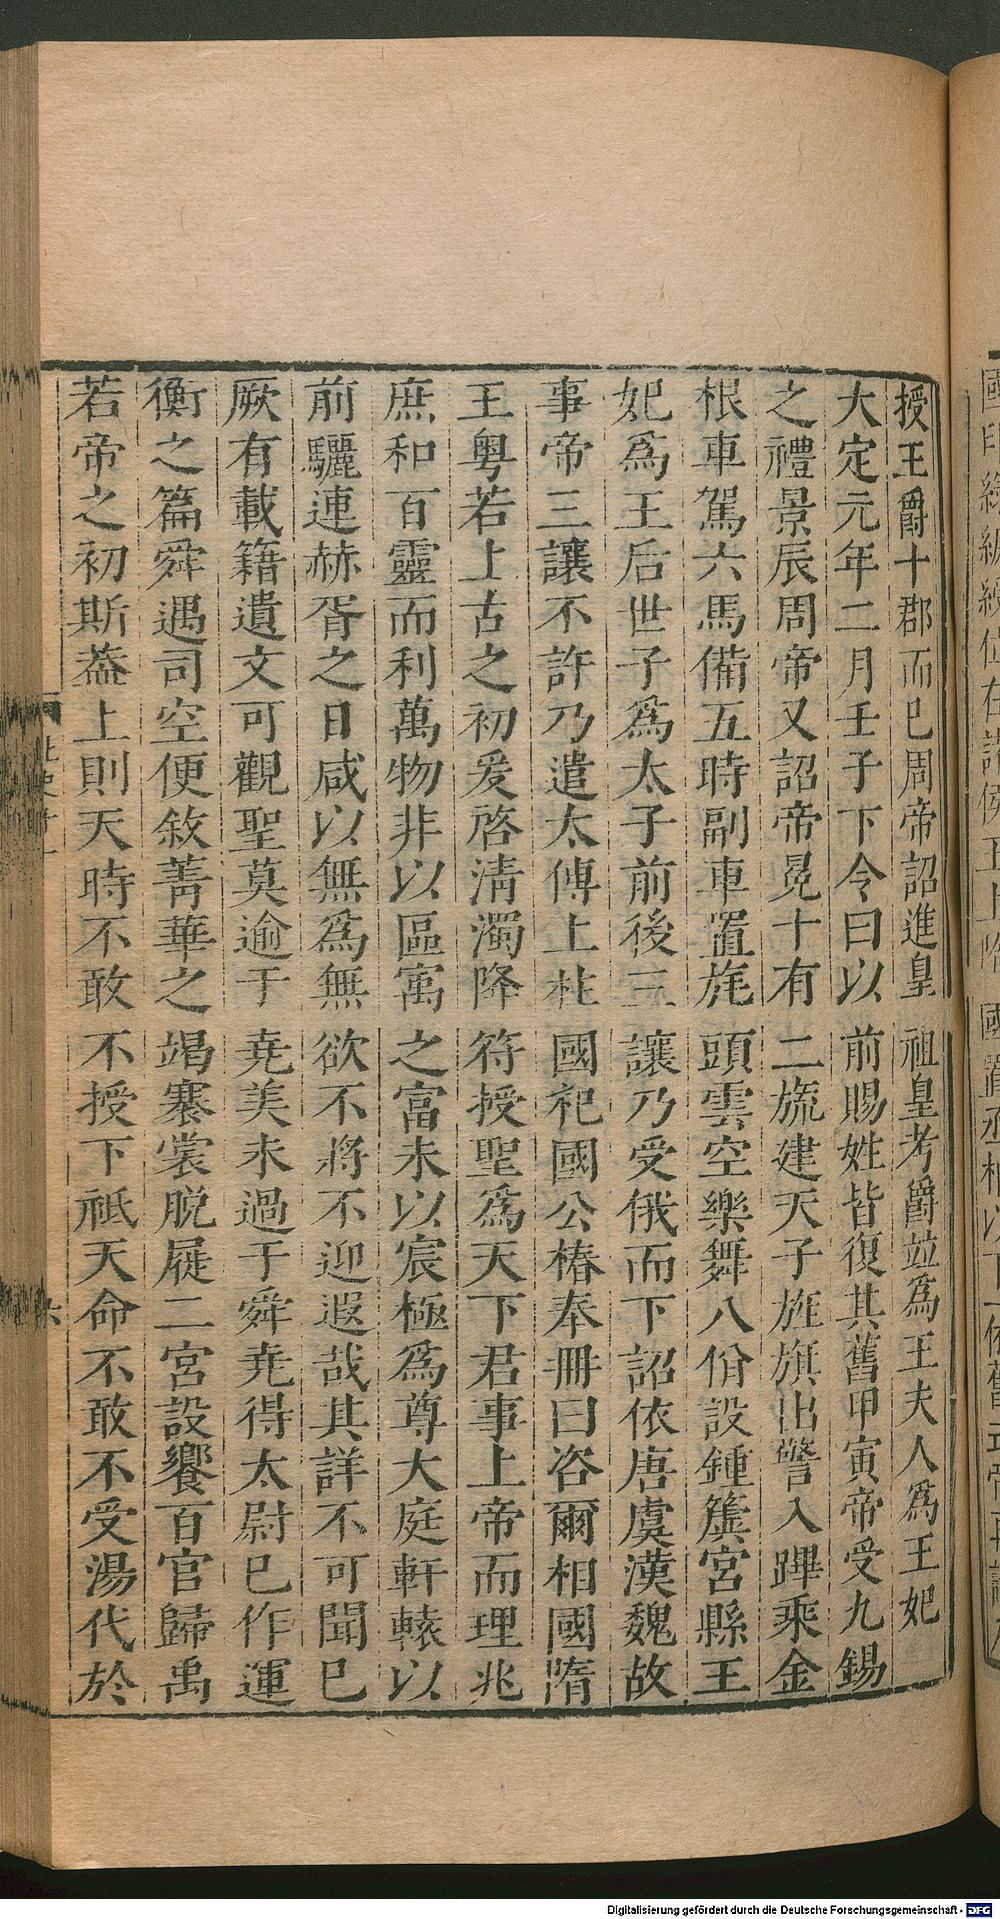 授王爵十郡而已周帝詔進皇祖皇考爵竝爲王夫人爲王妃
大定元年二月壬子下令曰以前賜姓皆復其舊甲寅帝受九錫
之禮景辰周帝又詔帝冕十有二旒建天子旌旗出警入蹕乘金
根車駕六馬備五時副車置旄頭雲罕樂舞八佾設鍾簴宮縣王
妃爲王后世子爲太子前後三讓乃受俄而下詔依唐虞漢魏故
事帝三讓不許乃遣太傅上柱國祀國公椿奉冊曰咨爾相國隋
王粵若上古之初爰啓清濁降符授聖爲天下君事上帝而理兆
庶和百靈而利萬物非以區寓之富未以宸極爲尊大庭軒轅以
前驪連赫胥之日咸以無爲無欲不將不迎遐哉其詳不可聞已
厥有載籍遺文可觀聖莫逾于堯美未過于舜堯得太尉已作運
衡之篇舜遇司空便敘菁華之竭褰裳脫屣二宮設饗百官歸禹
若帝之初斯蓋上則天時不敢不授下祗天命不敢不受湯代於
六
Digitalisierung gefördert durch die Deutsche Forschungsgemeinschaft - DFG